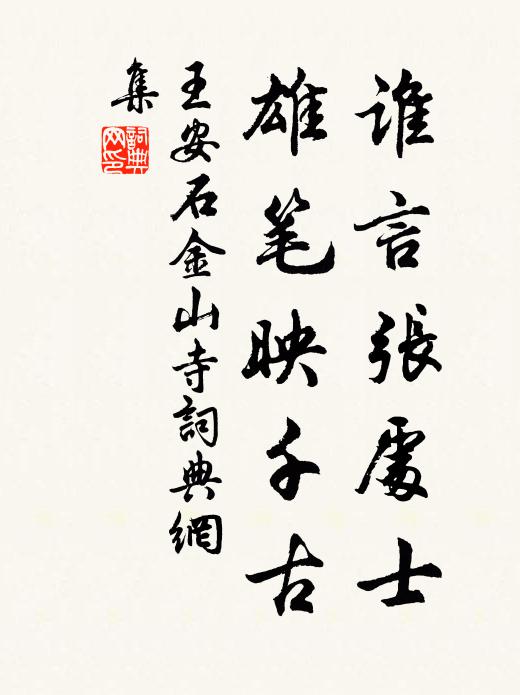 谁言張處士
雄笔映千古
王安石金山寺詞典網
集
詞典網印